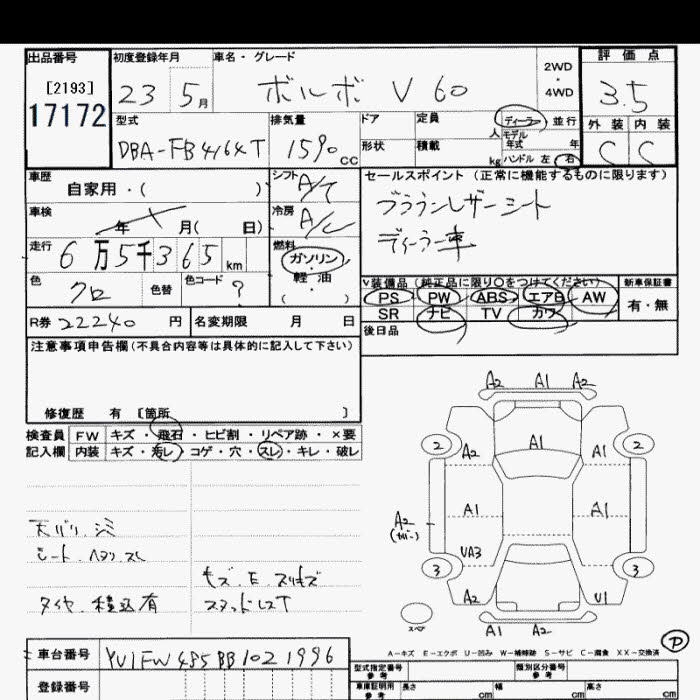 出品番号 初度登録年月 車名・グレード 評価点
[2193]
17172
23 5月 ボルボ V60 2WD・4WD 3.5
型式 排気量 ドア 定員 人 ディーラー 並行 外装 内装
DBA-FB4164T 1590cc 形状 積載 kg モデル年式 年 C C
ハンドル 左 右
車歴 自家用・( ) シフト A/T
セールスポイント (正常に機能するものに限ります)
ブラウンレザーシート
ディーラー車
車検 年 月( 日) 冷房 A/C
走行 6万5千365km 燃料 ガソリン・軽油 ( )
色 クロ 色替 色コード ?
V装備品 (純正品に限り○をつけてください) 新車保証書
PS PW ABS エアB AW 有・無
SR ナビ TV カワ
R券 22240 円 名変期限 月 日
後日品
注意事項申告欄(不具合内容等は具体的に記入して下さい)
修復歴 有 [箇所 ]
検査員 FW キズ・飛石・ヒビ割・リペア跡・×要
記入欄 内装 キズ・汚レ・コゲ・穴・スレ・キレ・破レ
A2 A1 A2
2 A2 A1 2
A1 A1
A2
UA3
3 A2 U1 3
スペア A1 A2
天バリ シミ
シート ヘタリ スレ
タイヤ 積込有
スタッドレスT
P
A-キズ E-エクボ U-凹み W-補修跡 S-サビ C-腐食 XX-交換済
車台番号 YV1FW485BB1021996
登録番号
型式指定番号 参考 類別区分番号 参考
車庫証明用 参考 長さ cm 幅 cm 高さ cm